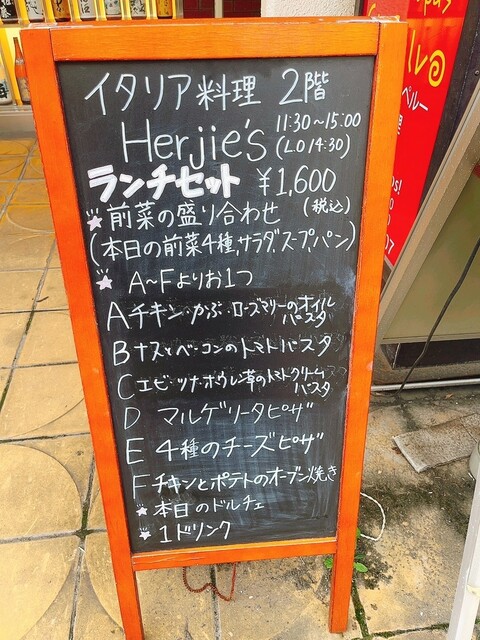 イタリア料理 2階
Herjie's
11:30~15:00
(LO 14:30)
ランチセット ¥1,600
(税込)
★前菜の盛り合わせ
(本日の前菜4種,サラダ,スープ,パン)
★ A~Fよりお1つ
Aチキン・かぶ・ローズマリーのオイル
パスタ
Bナスとベーコンのトマトパスタ
Cエビ・ツナ・ホウレン草のトマトクリーム
パスタ
D マルゲリータピザ
E 4種のチーズピザ
Fチキンとポテトのオーブン焼き
★本日のドルチェ
★1ドリンク
ペルー